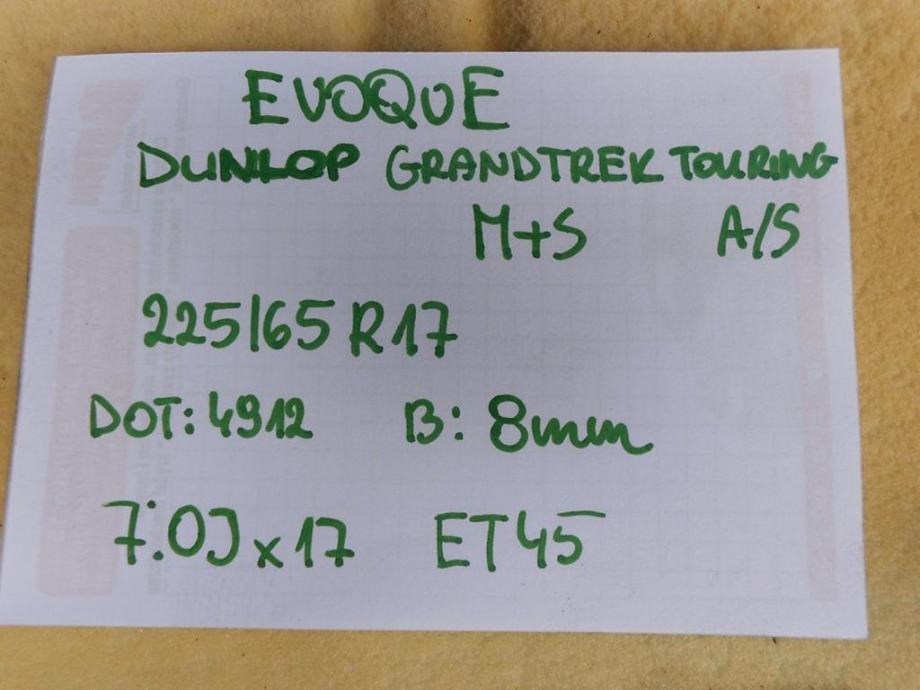 EVOQUE
DUNLOP GRANDTREK TOURING
M+S A/S
225/65 R17
DOT: 4912 B: 8mm
7.0J x 17 ET45